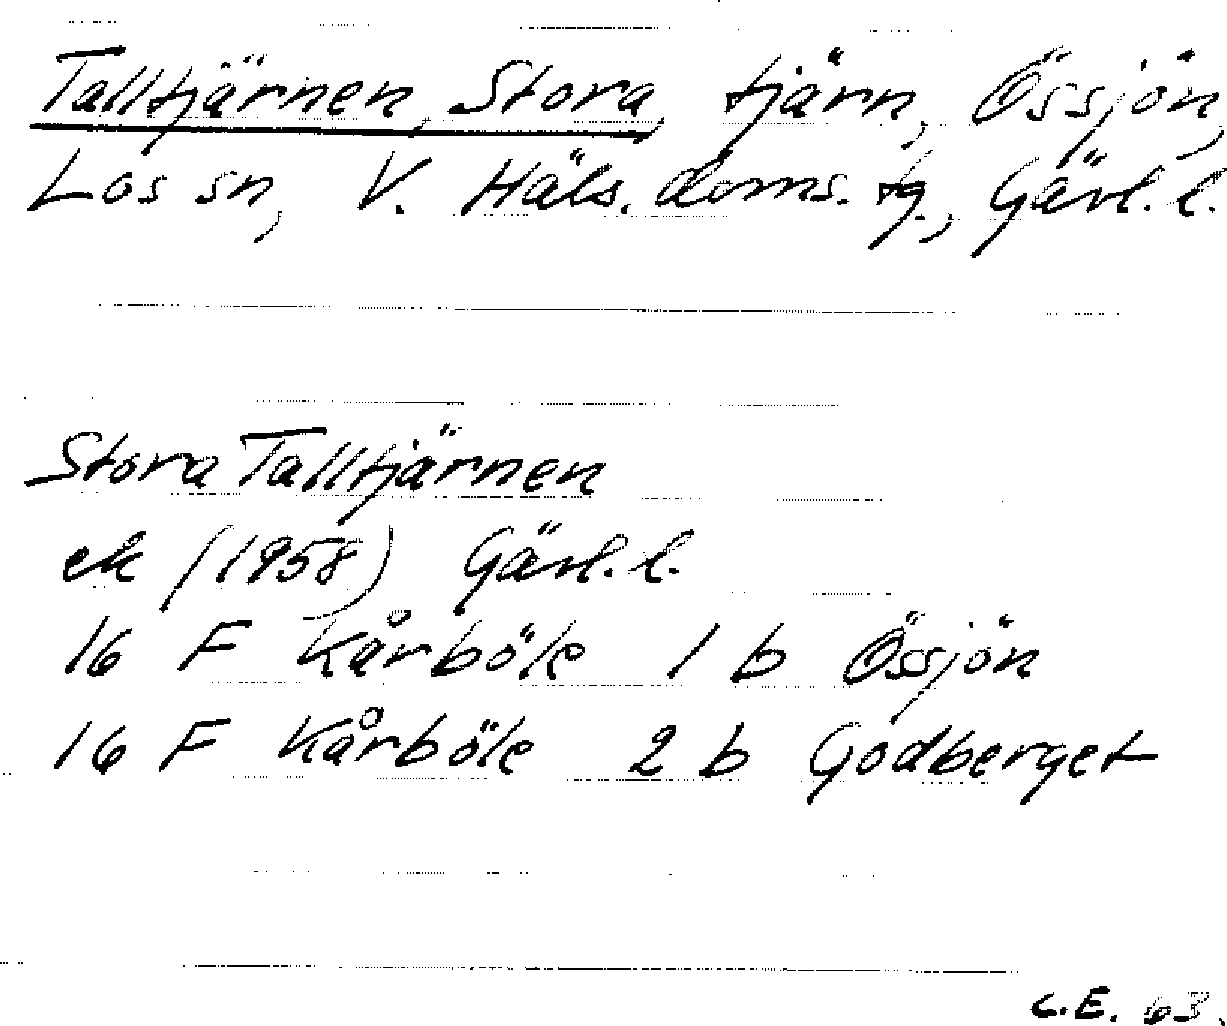 Talltjärnen, Stora, tjärn, Össjön,
Los sn, V. Häls. doms. tg., Gävl. l.
Stora Talltjärnen
ek (1958) Gävl. l.
16 F Kårböle 1 b Össjön
16 F Kårböle 2 b Godberget
C.E. 63.